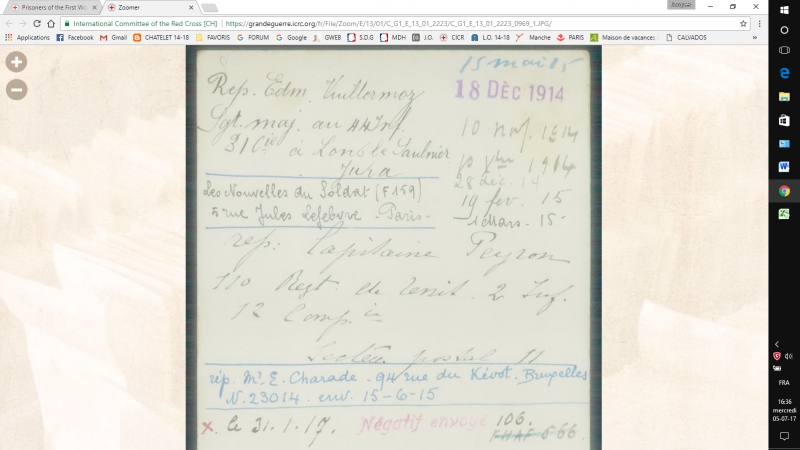 Prisoners of the First Wor
Zoomer
International Committee of the Red Cross [CH]
https://grandeguerre.icrc.org/fr/File/Zoom/E/13/01/C_G1_E_13_01_2223/C_G1_E_13_01_2223_0969_1.JPG/
Applications
Facebook
Gmail
CHATELET 14-18
FAVORIS
FORUM
Google
GWEB
S.O.G
MDH
J.O.
CICR
L.O. 14-18
Manche
PARIS
Maison de vacances
CALVADOS
»
15 mai 15
Rep. Edm. Vuillermoz
18 DÈC 1914
Sgt. maj. au 44 Inf.
10 nov. 1914
31 Cie à Lons le Saulnier
10 Xbre 1914
Jura
28 déc. 14
Les Nouvelles du Soldat (F159)
19 fev. 15
5 rue Jules Lefebvre - Paris -
1 Mars. 15 -
rep: Capitaine Peyron
110 Regt. de Inf.
12 Comp. in
Secteur postal 11
rép. Mr. E. Charade. 94 rue du Kévot. Bruxelles
N. 23014. env. 15-6-15
x. le 31.1.17.
Négatif envoyé
106.
FRA
16:36
mercredi
05-07-17